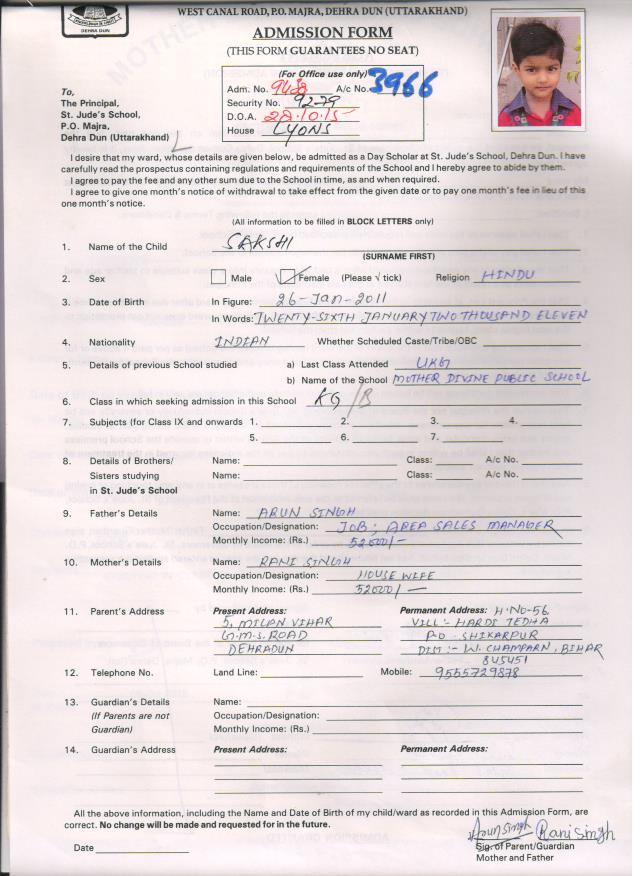 DEHRA DUN
WEST CANAL ROAD, P.O. MAJRA, DEHRA DUN (UTTARAKHAND)
ADMISSION FORM
(THIS FORM GUARANTEES NO SEAT)
(For Office use only)
Adm. No. 9428 A/c No. 3966
Security No. 9279
D.O.A. 28.10.15
House LYONS
To,
The Principal,
St. Jude's School,
P.O. Majra,
Dehra Dun (Uttarakhand)
I desire that my ward, whose details are given below, be admitted as a Day Scholar at St. Jude's School, Dehra Dun. I have
carefully read the prospectus containing regulations and requirements of the School and I hereby agree to abide by them.
I agree to pay the fee and any other sum due to the School in time, as and when required.
I agree to give one month's notice of withdrawal to take effect from the given date or to pay one month's fee in lieu of this
one month's notice.
(All information to be filled in BLOCK LETTERS only)
1. Name of the Child SAKSHI
(SURNAME FIRST)
2. Sex Male Female (Please √ tick) Religion HINDU
3. Date of Birth In Figure: 26-Jan-2011
In Words: TWENTY-SIXTH JANUARY TWO THOUSAND ELEVEN
4. Nationality INDIAN Whether Scheduled Caste/Tribe/OBC
5. Details of previous School studied a) Last Class Attended UKG
b) Name of the School MOTHER DIVINE PUBLIC SCHOOL
6. Class in which seeking admission in this School KG/B
7. Subjects (for Class IX and onwards 1. 2. 3. 4.
5. 6. 7.
8. Details of Brothers/ Name: Class: A/c No.
Sisters studying Name: Class: A/c No.
in St. Jude's School
9. Father's Details Name: ARUN SINGH
Occupation/Designation: JOB; AREA SALES MANAGER
Monthly Income: (Rs.) 52000/-
10. Mother's Details Name: RANI SINGH
Occupation/Designation: HOUSE WIFE
Monthly Income: (Rs.) 52000/-
11. Parent's Address Present Address: Permanent Address: H.No-56
5, MILAN VIHAR VILL:- HARDI TEDHA
G.M.S. ROAD P.O - SHIKARPUR
DEHRADUN DIST:- W. CHAMPARN, BIHAR
845451
12. Telephone No. Land Line: Mobile: 9555729878
13. Guardian's Details Name:
(If Parents are not Occupation/Designation:
Guardian) Monthly Income: (Rs.)
14. Guardian's Address Present Address: Permanent Address:
All the above information, including the Name and Date of Birth of my child/ward as recorded in this Admission Form, are
correct. No change will be made and requested for in the future.
Arun Singh Rani Singh
Date Sig. of Parent/Guardian
Mother and Father